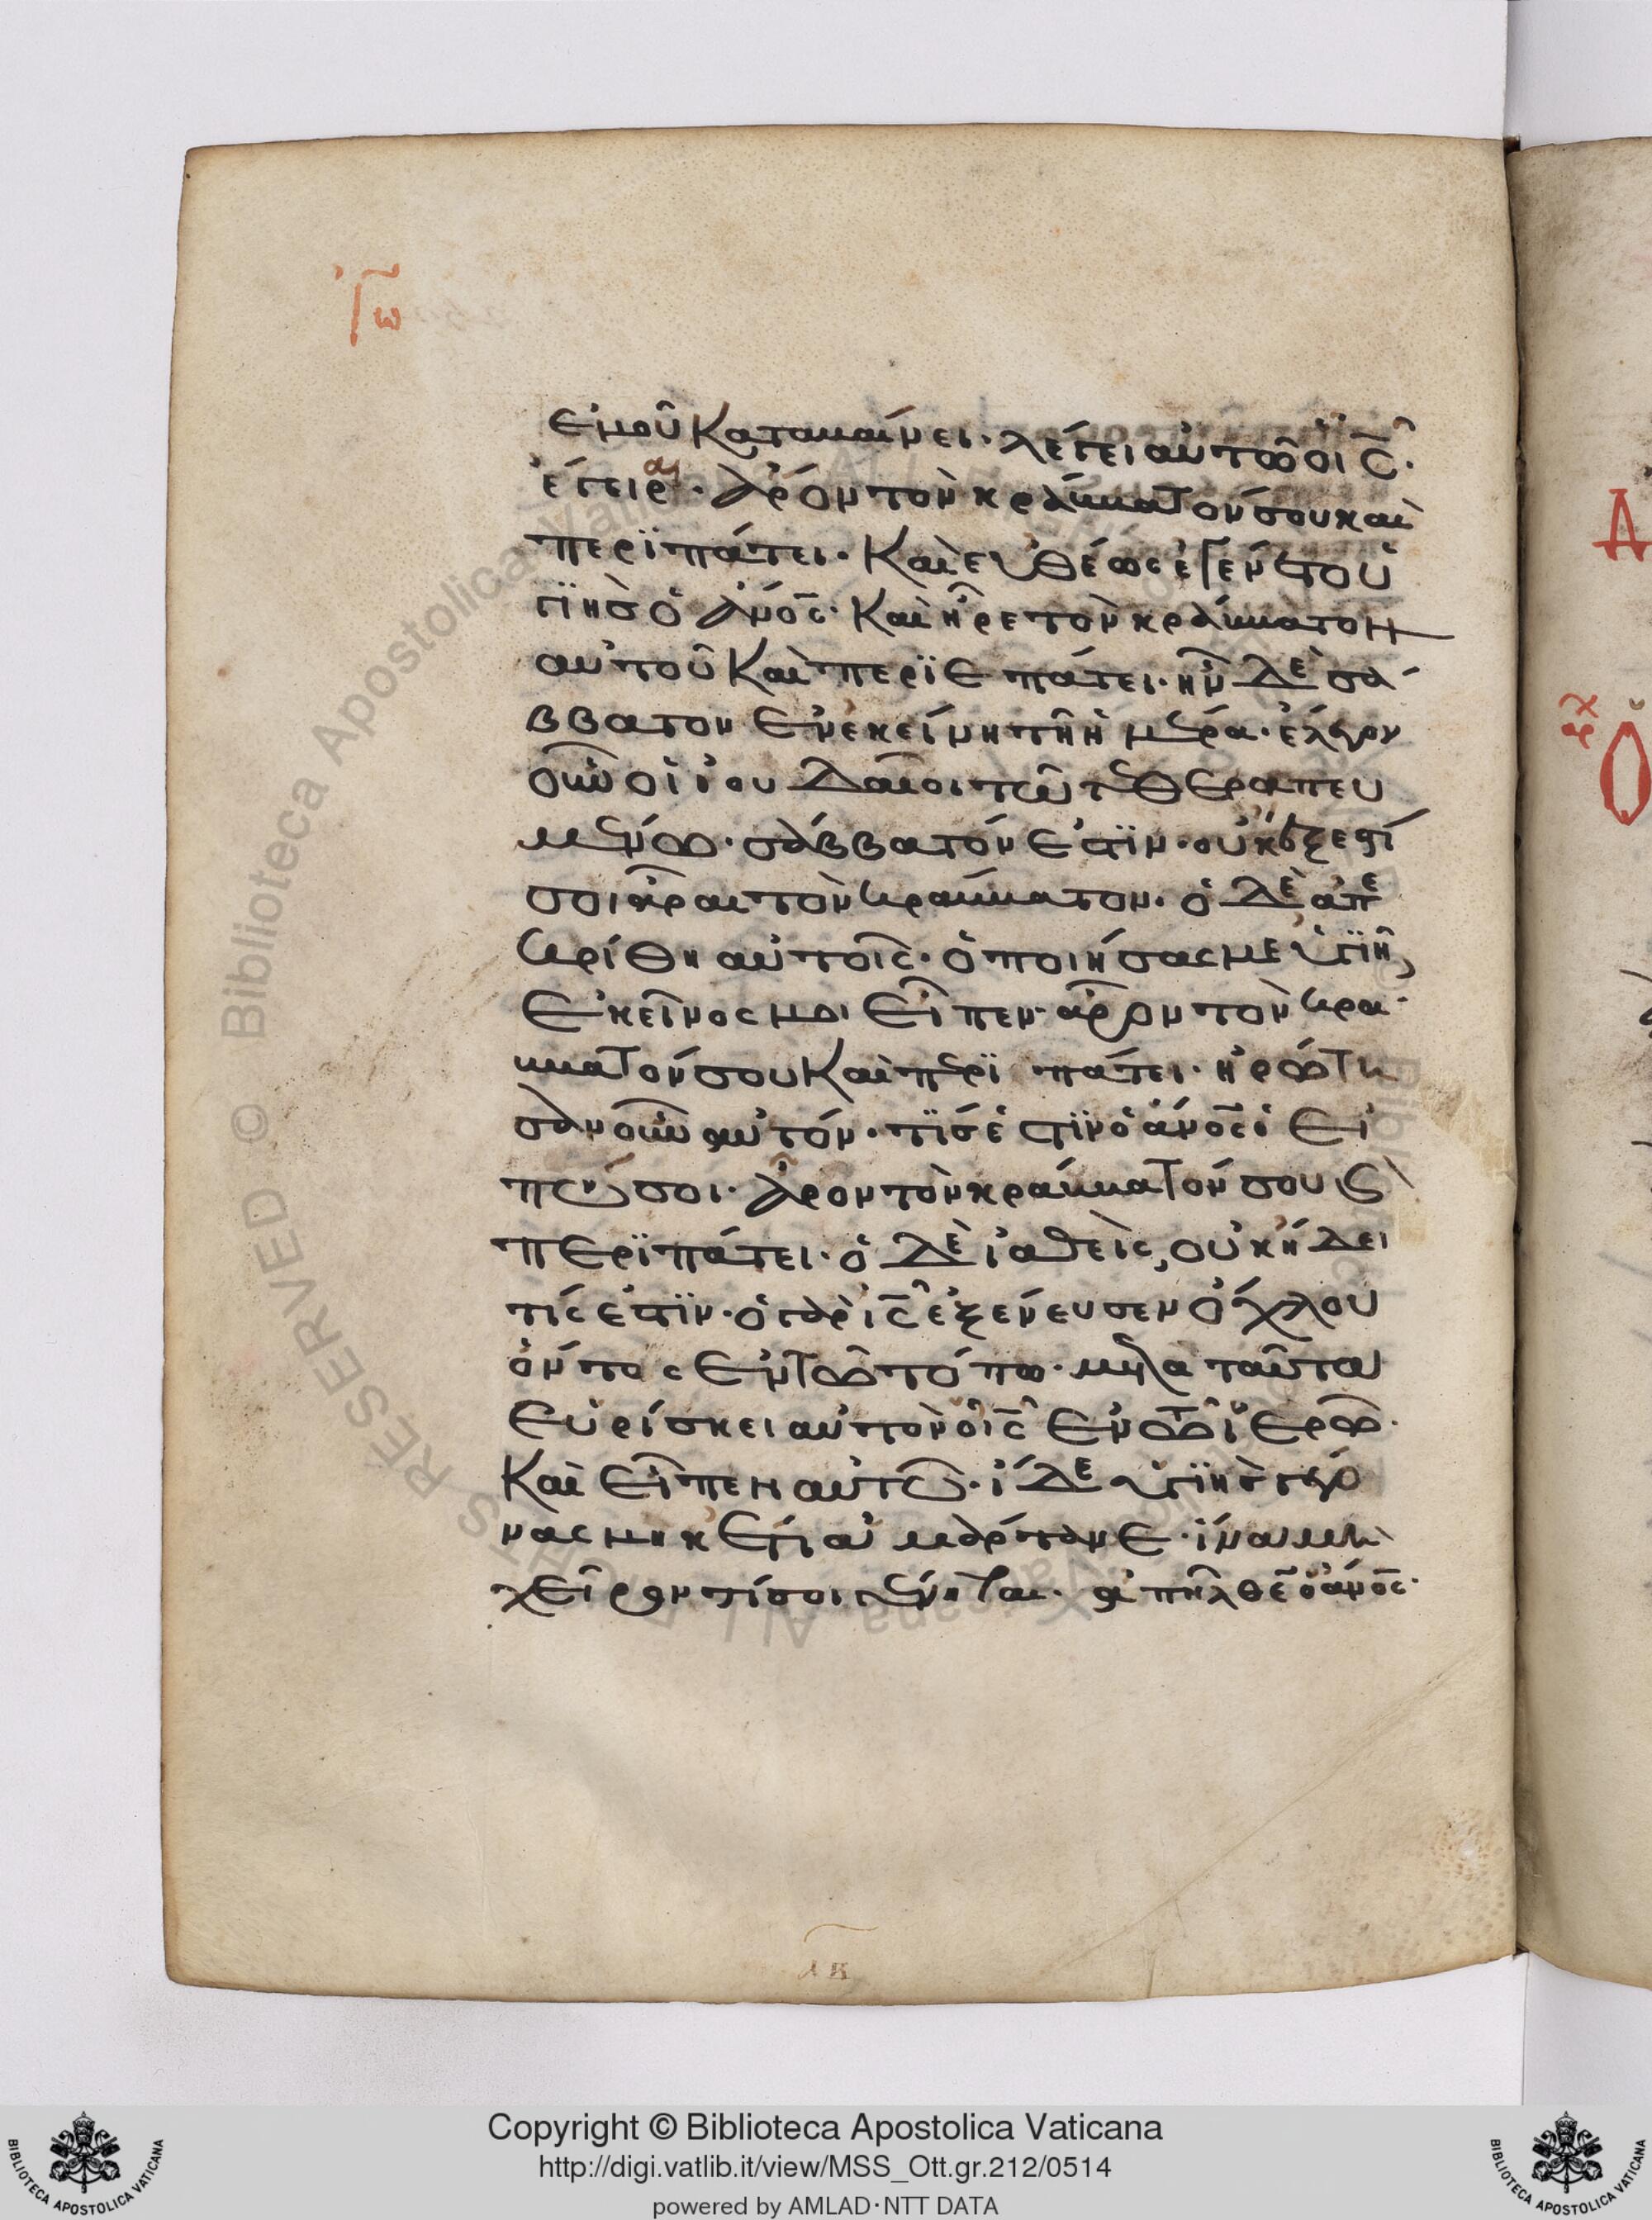 ἐμοῦ καταβαίνει. λέγει αὐτῶ ὁ ῑς̄.
ἔγειραι. ἆρόν τὸν κράββατόν σου καὶ
περϊπάτει. Καὶ εὐθέως ἐγένετο ὑ
γϊὴσ ὁ ἄνο̄ς. Καὶ ἦρε τὸν κράββατον
αὐτοῦ Καὶ περϊεπάτει. ἦν δὲ σά
ββατον ἐν ἐκείνη τῆ ἡμέρα. ἔλεγον
οὖν οἱ ἰουδαῖοι τῶ τεθεραπευ
μένω. σάββατόν ἐστϊν. οὐκ ἔξεστί
σοι ἆραι τὸν κράββατον. ὁ δὲ ἀπε
κρίθη αὐτοῖς. ὁ ποιήσας με ὑγϊῆ,
ἐκεῖνος μοι εἶπεν. ἆρον τὸν κρα
ββατόν σου Καὶ περϊ πάτει. ἠρώτη
σαν οὖν αὐτόν. τϊσ ἐστϊν ὁ ἄνο̄ς ὁ εἰ
πών σοι. ἆρον τὸν κράββατόν σου ϛ̀
περϊπάτει. ὁ δὲ ἰαθεὶς, οὐκ ἤδει
τίς ἐστϊν. ὁ γὰρ ῑς̄ ἐξένευσεν ὄχλου
ὄντος ἐν τῶ τόπω. μετα ταῦτα
εὑρίσκει αὐτὸν ὁ ῑς̄ ἐν τῶ ἱερῶ.
Καὶ εἶπεν αὐτῶ. ἴδε ὑγϊὴσ γέγο
νας μηκέτι ἁμάρτανε. ἵνα μὴ
χεῖρόν τί σοι γένηται. ἀπῆλθε ὁ ἄνο̄ς.
Copyright © Biblioteca Apostolica Vaticana
http://digi.vatlib.it/view/MSS_Ott.gr.212/0514
powered by AMLAD·NTT DATA